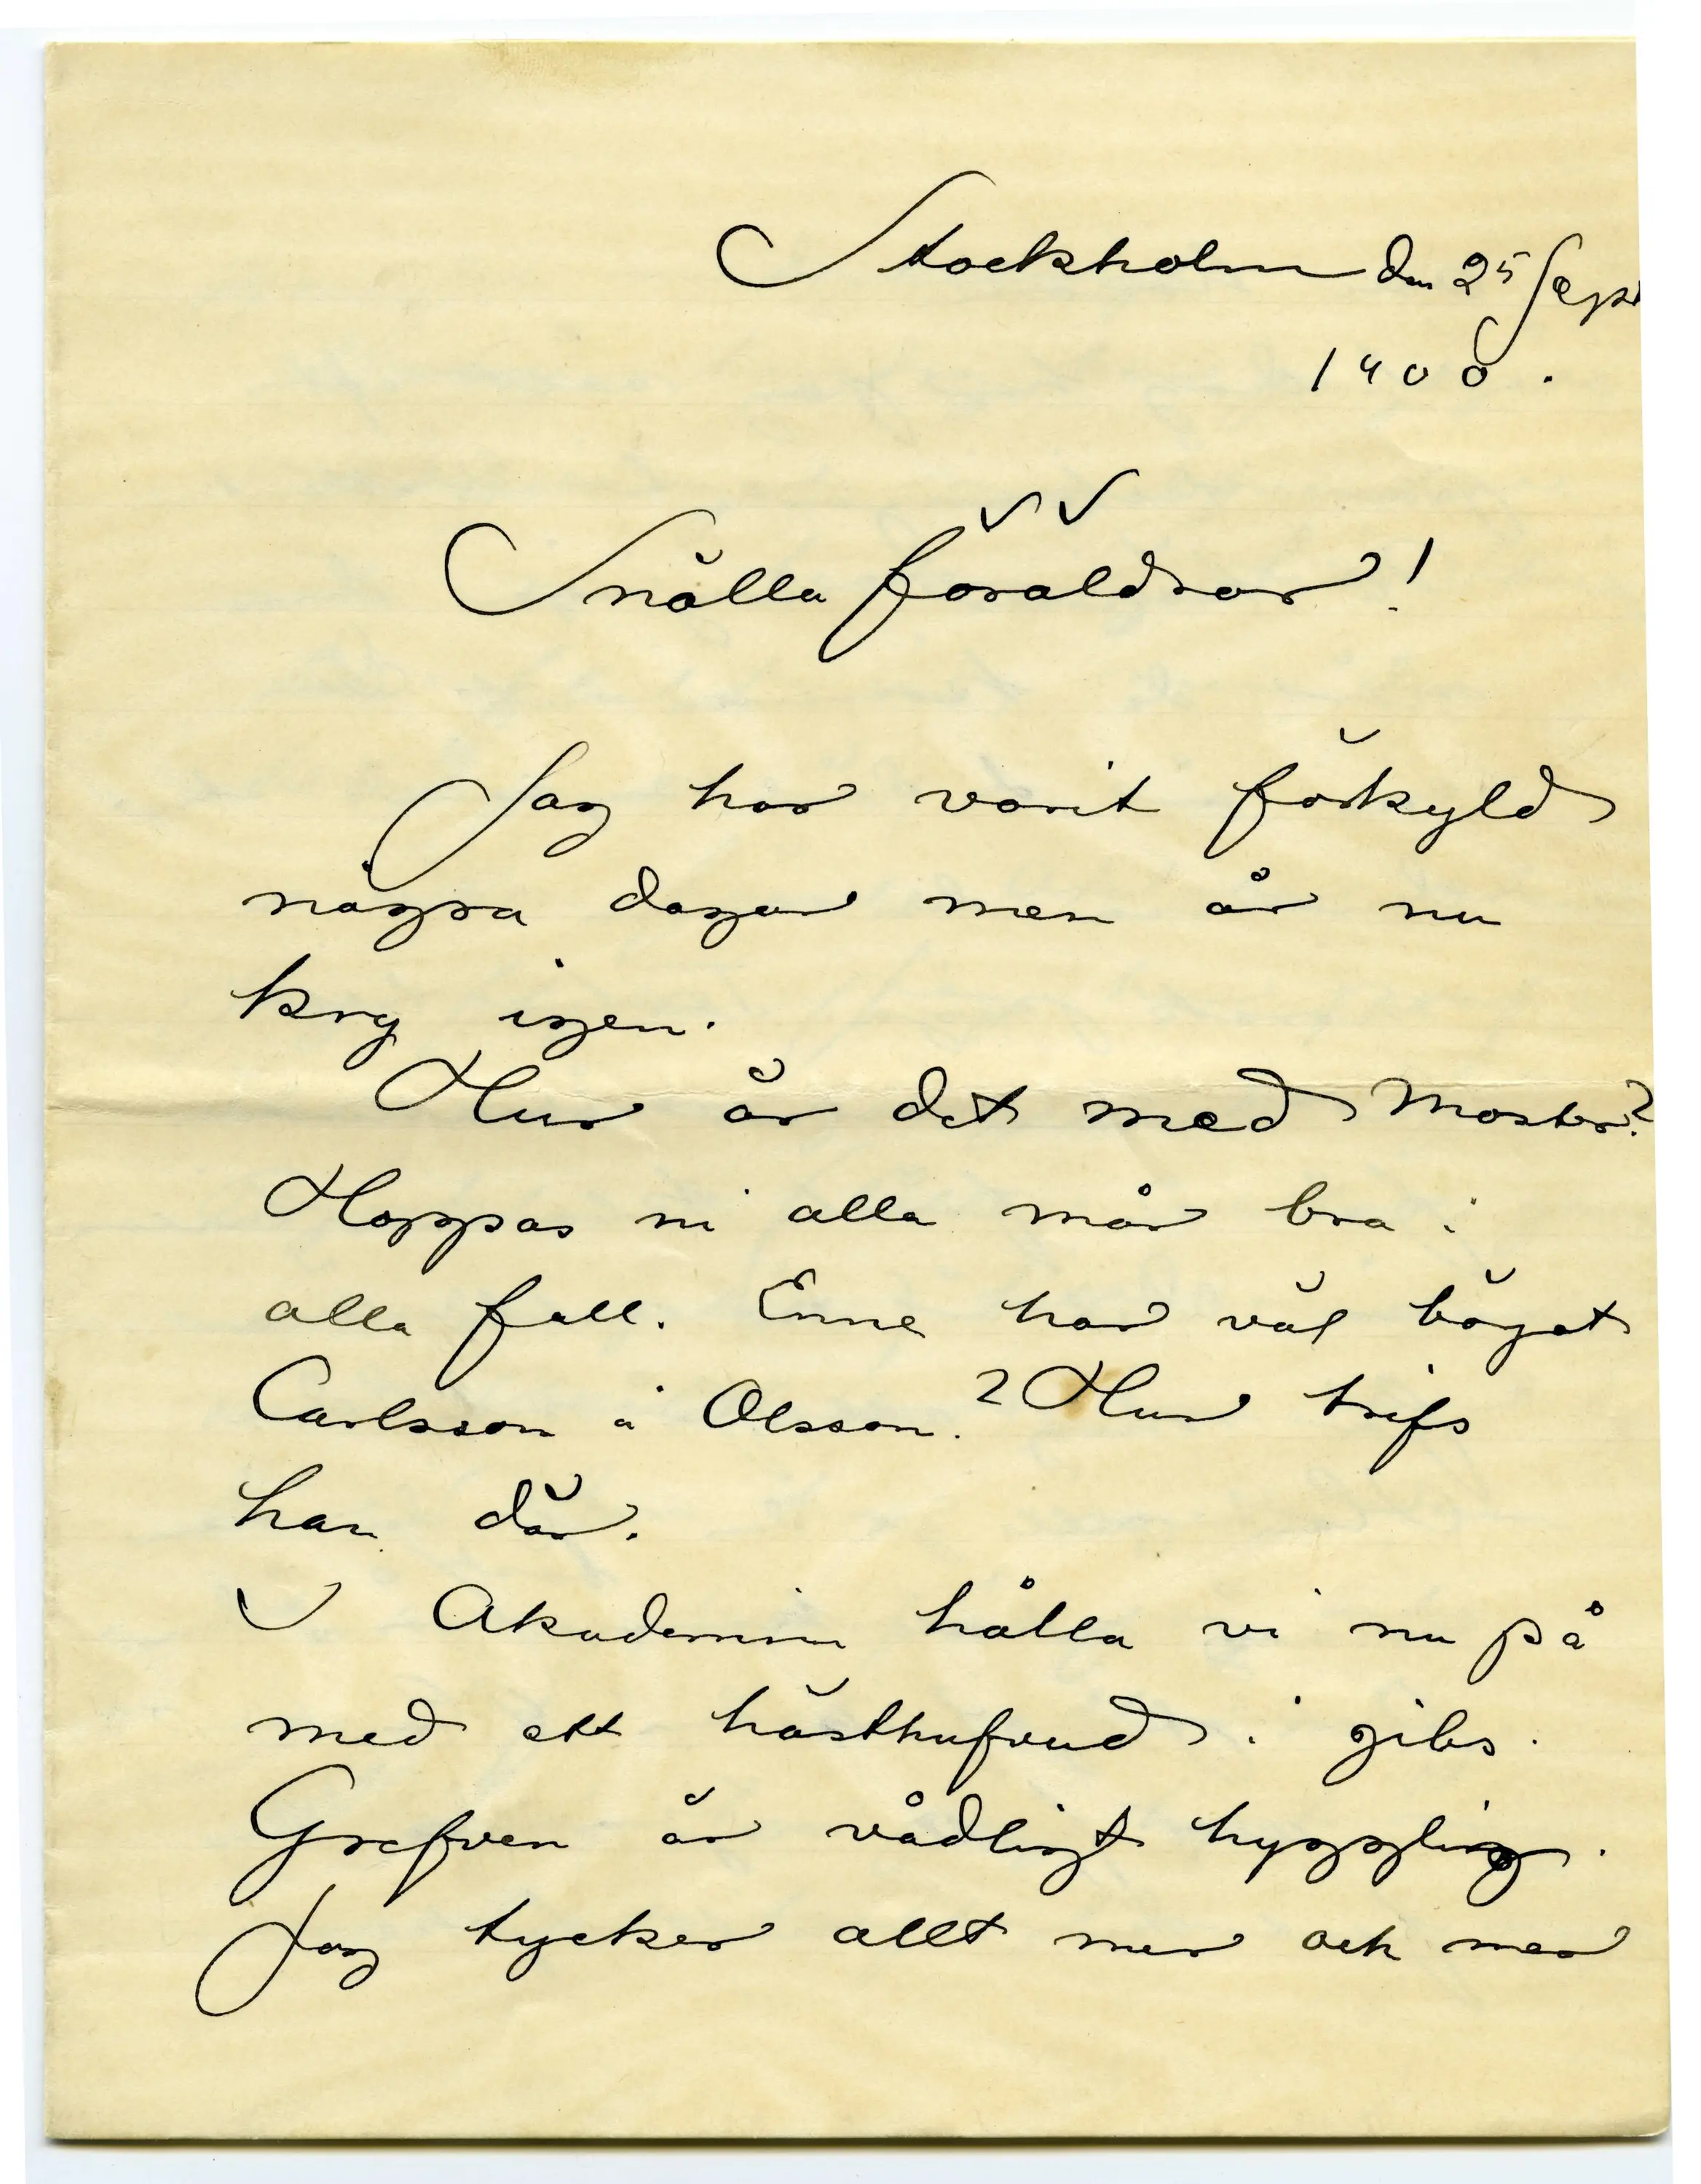 Stockholm den 25 Sept
1900.
Snälla föräldrar!
Jag har varit förkyld
några dagar men är nu
kry igen.
Hur är det med Moster?
Hoppas ni alla mår bra i
alla fall. Enne har väl börjat
Carlsson å Olsson? Hur trifs
han där.
I Akademin hålla vi nu på
med ett hästhufvud i gibs.
Grefven är vådligt hygglig.
Jag tycker allt mer och mer